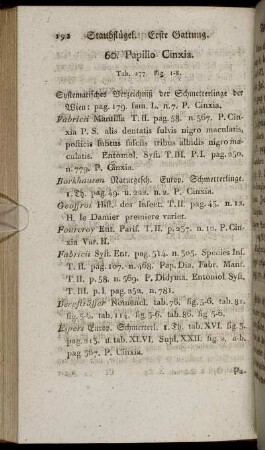 192 Staubflügel. Erste Gattung.
60. Papilio Cinxia.
Tab. 277 fig. 1-8.
Systematisches Verzeichniß der Schmetterlinge der
Wien: pag. 179. fam. l. n. 7. P. Cinxia.
Fabricii Mantissa T. II. pag. 58. n. 567. P. Cin-
xia P. S. alis dentatis fulvis nigro maculatis,
posticis subtus fasciis tribus albidis nigro ma-
culatis. Entomol. Syst. T. III. P. I. pag. 250.
n. 779. P. Cinxia.
Borkhausen Naturgesch. Europ. Schmetterlinge.
1. Th. pag. 49. u. 222. n. 2. P. Cinxia.
Geoffroi Hist. des Insect. T. II. pag. 45. n. 12.
H. le Damier premiere variet.
Fourcroy Ent. Paris. T. II. p. 257. n. 10. P. Cin-
xia Var. II.
Fabricii Syst. Ent. pag. 514. n. 305. Species Ins.
T. II. pag. 107. n. 468. Pap. Dia. Fabr. Mant.
T. II. p. 58. n. 569. P. Didyma. Entomol Syst.
T. III. p. I. pag. 251. n. 781.
Bergsträsser Nomencl. tab. 76. fig. 5-6. tab. 81.
fig. 5-6. tab. 114. fig. 5-6. tab. 86. fig. 5-6.
Espers Europ. Schmetterl. 1. Th. tab. XVI. fig 3.
pag. 213. u. tab. XLVI. Supl. XXII. fig. 2. a-b.
pag 367. P. Cinxia.
Pa-